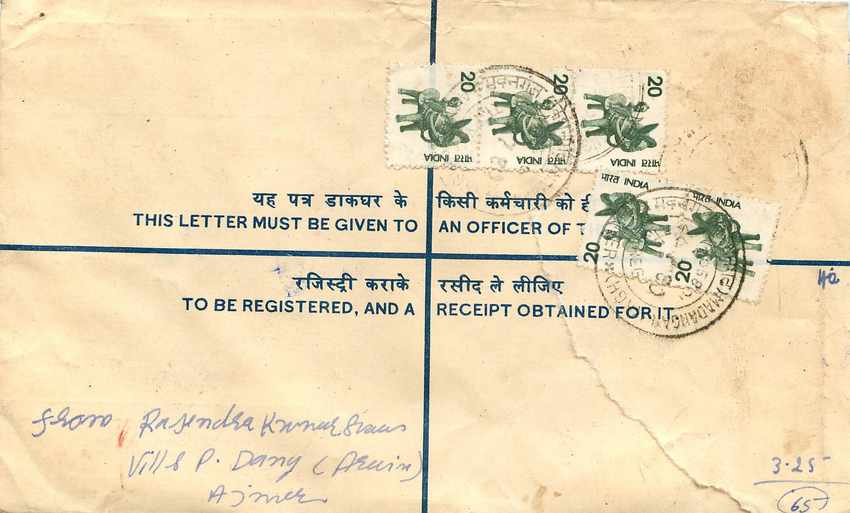 20 20 20
भारत INDIA भारत INDIA भारत INDIA
भारत INDIA भारत INDIA
20 20
यह पत्र डाकघर के किसी कर्मचारी को ही
THIS LETTER MUST BE GIVEN TO AN OFFICER OF T
रजिस्ट्री कराके रसीद ले लीजिए
TO BE REGISTERED, AND A RECEIPT OBTAINED FOR IT
MADANGANJ
from Rajendra Kumar
Vill & P. Dang
Ajmer
3.25
65